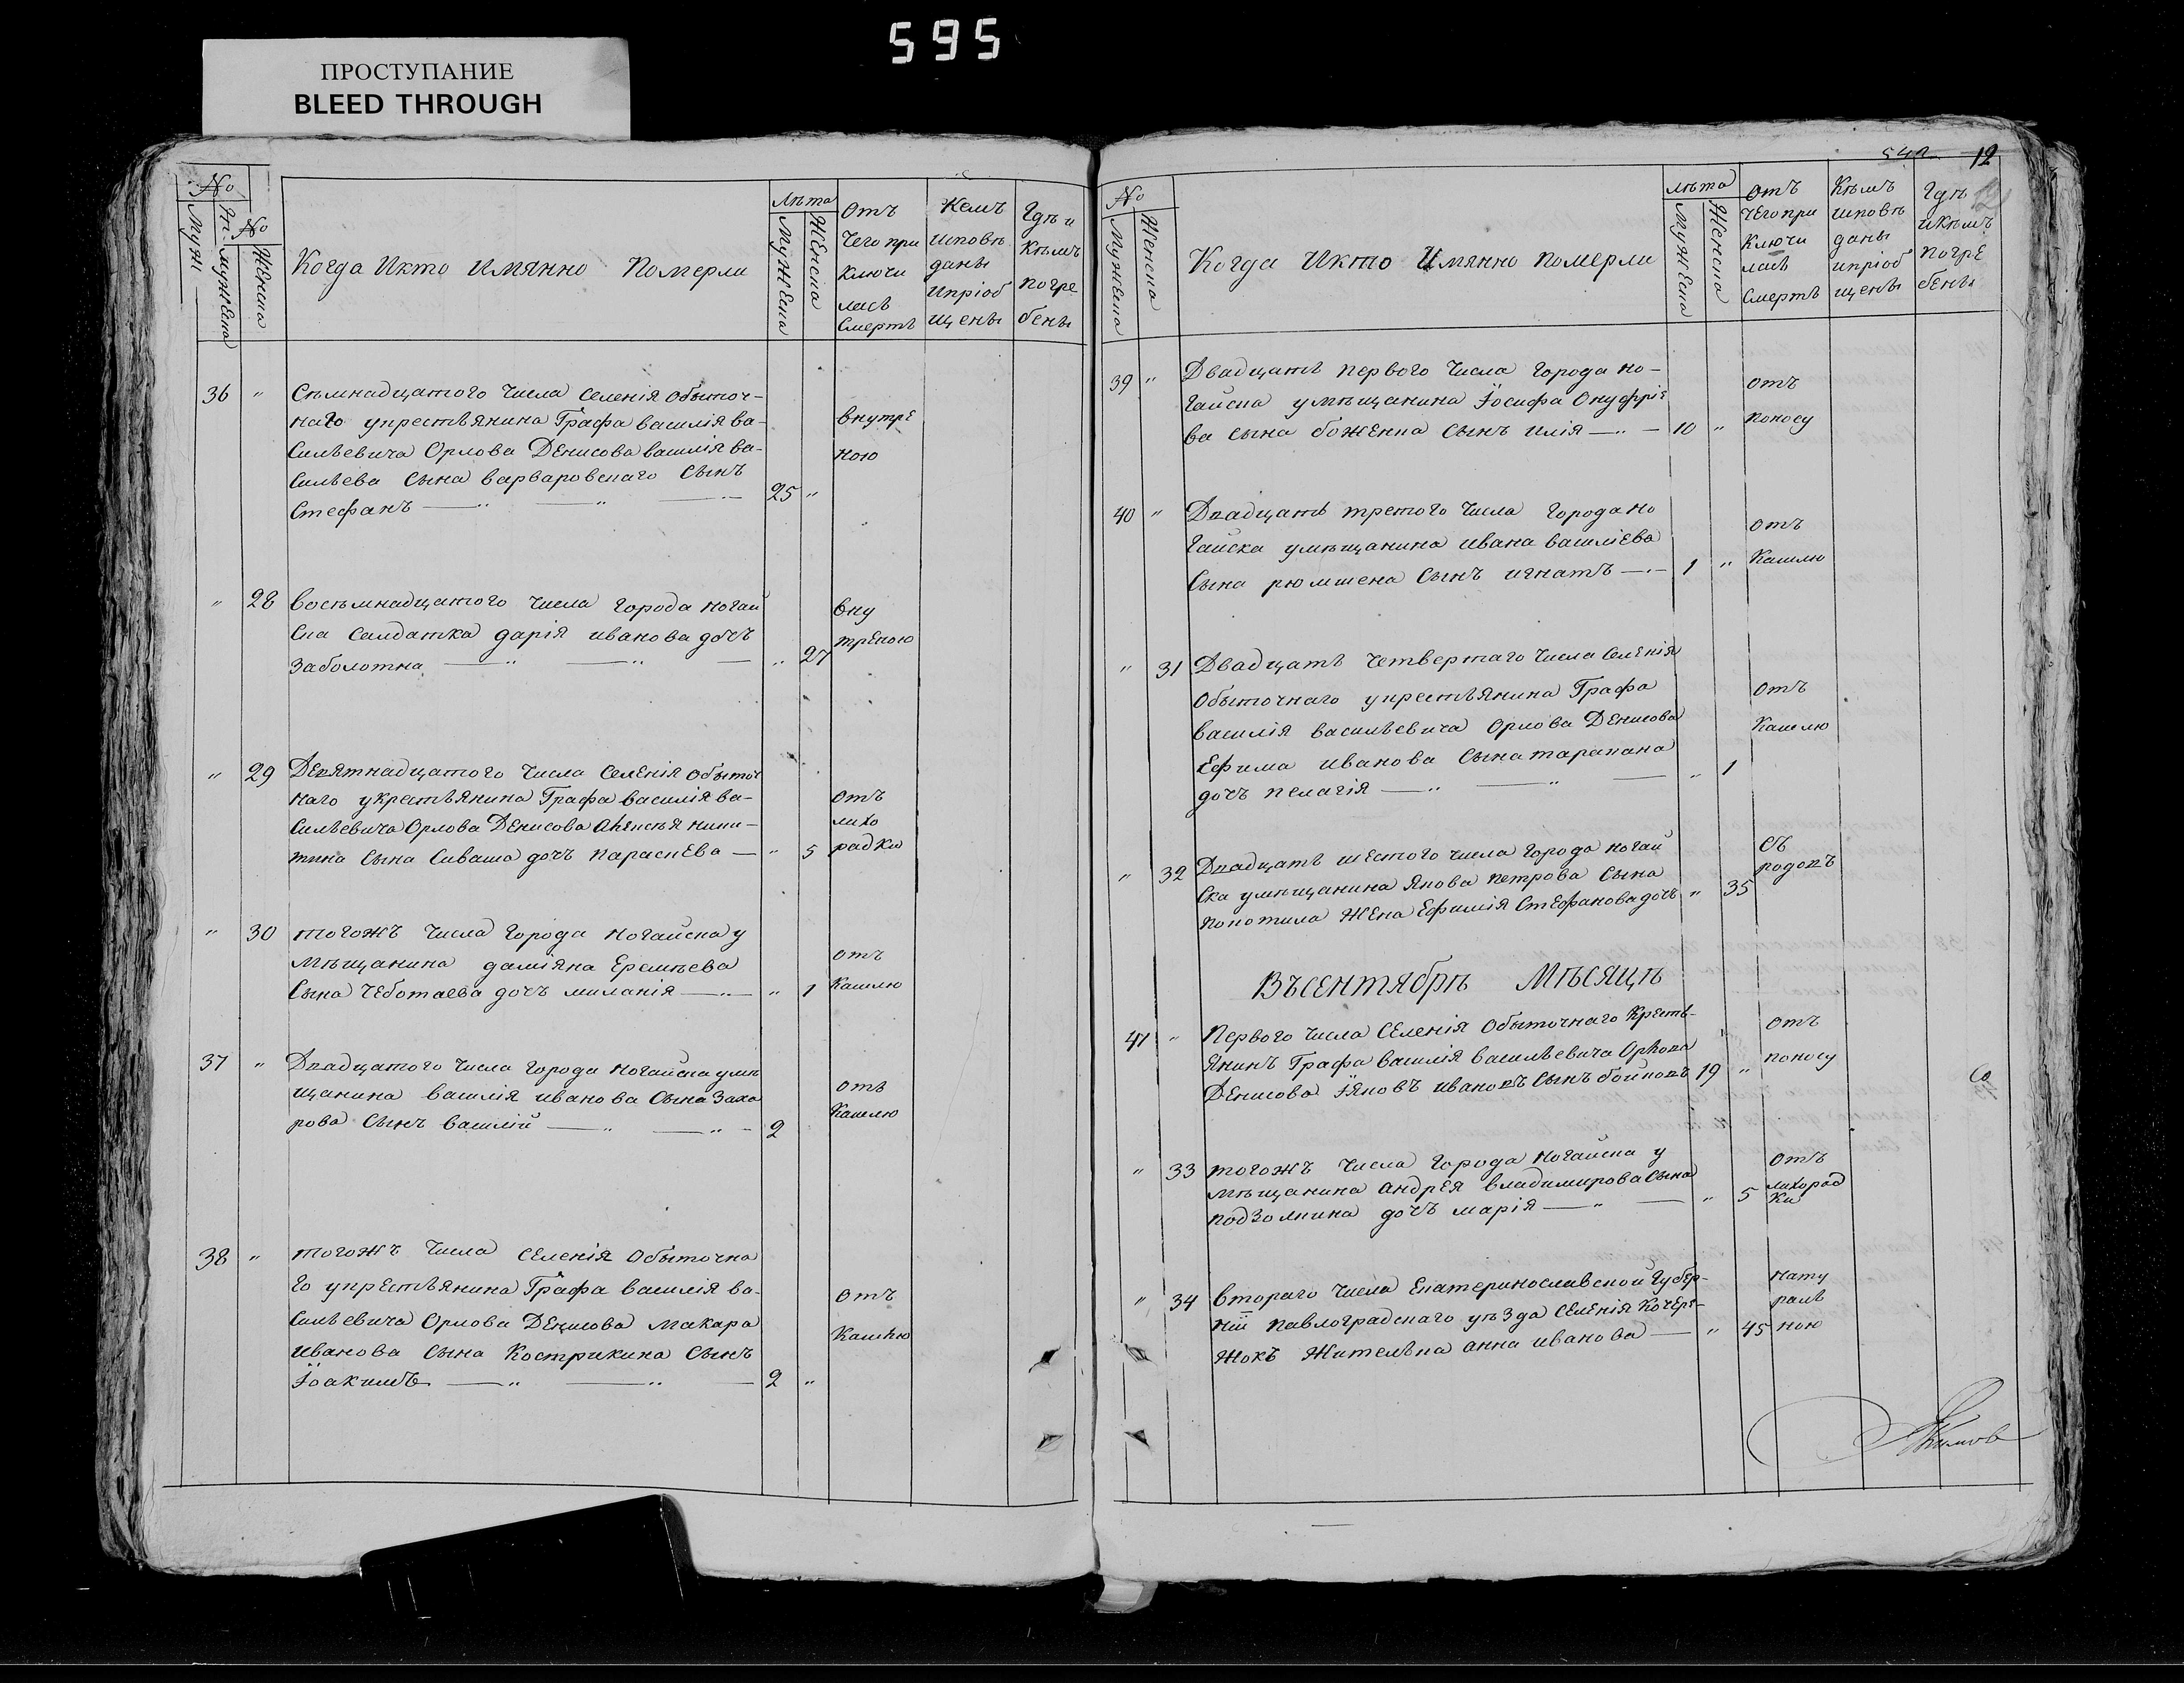 595
ПРОСТУПАНИЕ
BLEED THROUGH
№
№
Мужеска
Женска
Когда Икто имянно Померли
Лѣта
Мужеска
Женска
Отъ
чего при
ключи
лась
Смерть
Кемъ
исповѣ
даны
Ипріоб
щены
Гдѣ и
Кѣмъ
погре
бены
36 " Сѣмнадцатого числа селенія Обыточ-
наго укрестьянина Графа василія ва-
сильевича Орлова Денисова василія ва-
сильева сына варваровскаго сынъ
Стефанъ 25 "
внутре
ною
" 28 восьмнадцатого числа города ногай
ска салдатка дарія иванова дочъ
заболотна " 27
вну
треною
" 29 Девятнадцатого числа селенія обыточ
наго укрестьянина Графа василія ва-
сильевича Орлова Денисова Алексѣя ники-
тина сына Сиваша дочъ параскева " 5
отъ
лихо
радки
" 30 тогожъ числа города ногайска у
мѣщанина даміяна Еремѣева
сына чеботаева дочъ миланія " 1
отъ
Кашлю
37 " Двадцатого числа города ногайска умѣ
щанина василія иванова сына заха
рова сынъ василій 2
отъ
Кашлю
38 " тогожъ числа селенія Обыточна
го укрестьянина Графа василія ва-
сильевича Орлова Денисова макара
иванова сына Кострикина сынъ
Іоакимъ 2 "
отъ
Кашлю
12
№
Мужеска
Женска
Когда Икто Имянно померли
лѣта
Мужеска
Женска
Отъ
чего при
ключи
лась
Смерть
Кѣмъ
исповѣ
даны
ипріоб
щены
Гдѣ
икѣмъ
погре
бены
39 " Двадцать первого числа города но-
гайска умѣщанина Іосифа Онуфріе
ва сына боженка сынъ илія 10 "
отъ
поносу
40 " Двадцать третого числа города но
гайска умѣщанина ивана василіева
сына рюмшена сынъ игнатъ 1 "
отъ
Кашлю
" 31 Двадцать четвертаго числа селенія
Обыточнаго укрестьянина Графа
василія васильевича Орлова Денисова
Ефима иванова сына таракана
дочъ пелагія " 1
отъ
Кашлю
" 32 Двадцать шестого числа города ногай
ска умѣщанина Якова петрова сына
жена Ефимія Стефанова дочъ " 35
съ
родовъ
Въсентябрѣ Мѣсяцѣ
41 " Первого числа селенія Обыточнаго Кресть-
янинъ Графа василія васильевича Орлова
Денисова Іяковъ ивановъ сынъ бойковъ 19 "
отъ
поносу
" 33 тогожъ числа города ногайска у
мѣщанина андрея владимирова сына
подзолкина дочъ марія " 5
отъ
лихорад
ки
" 34 втораго числа Екатеринославской Губер-
ніи павлоградскаго уѣзда селенія Кочере-
жокъ жителька анна иванова " 45
нату
раль
ною